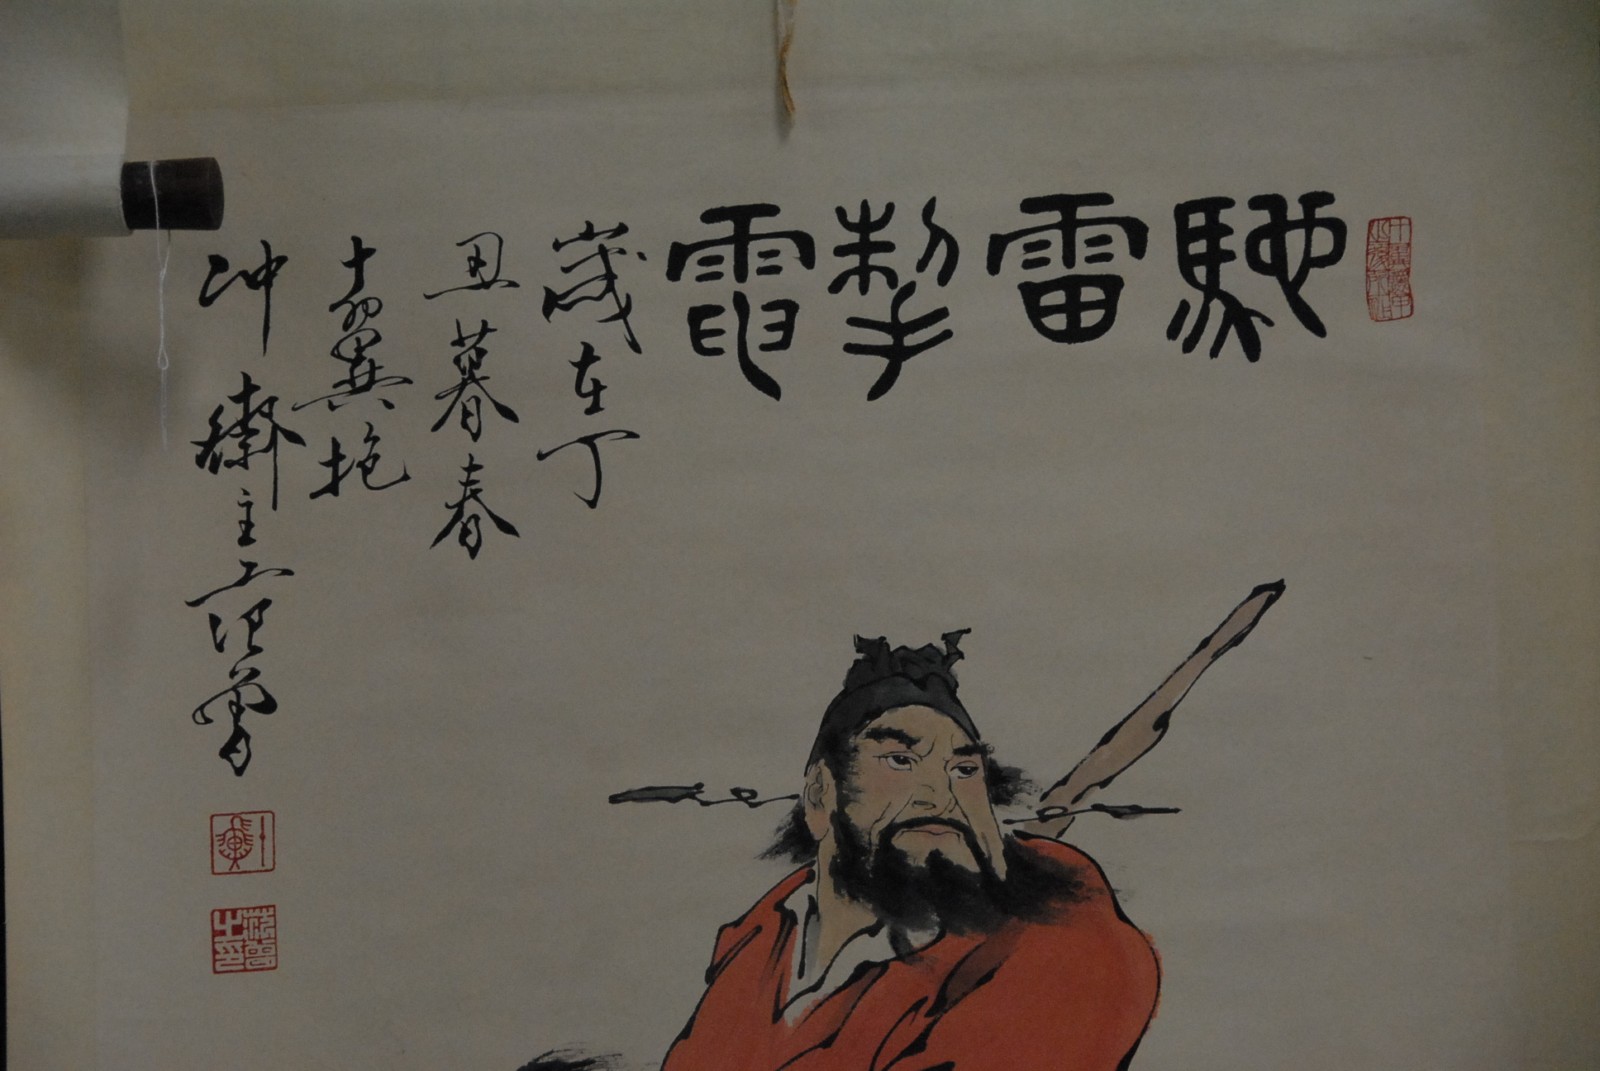 馳雷掣電
歲在丁
丑暮春
十翼抱
冲齋主江東范曾